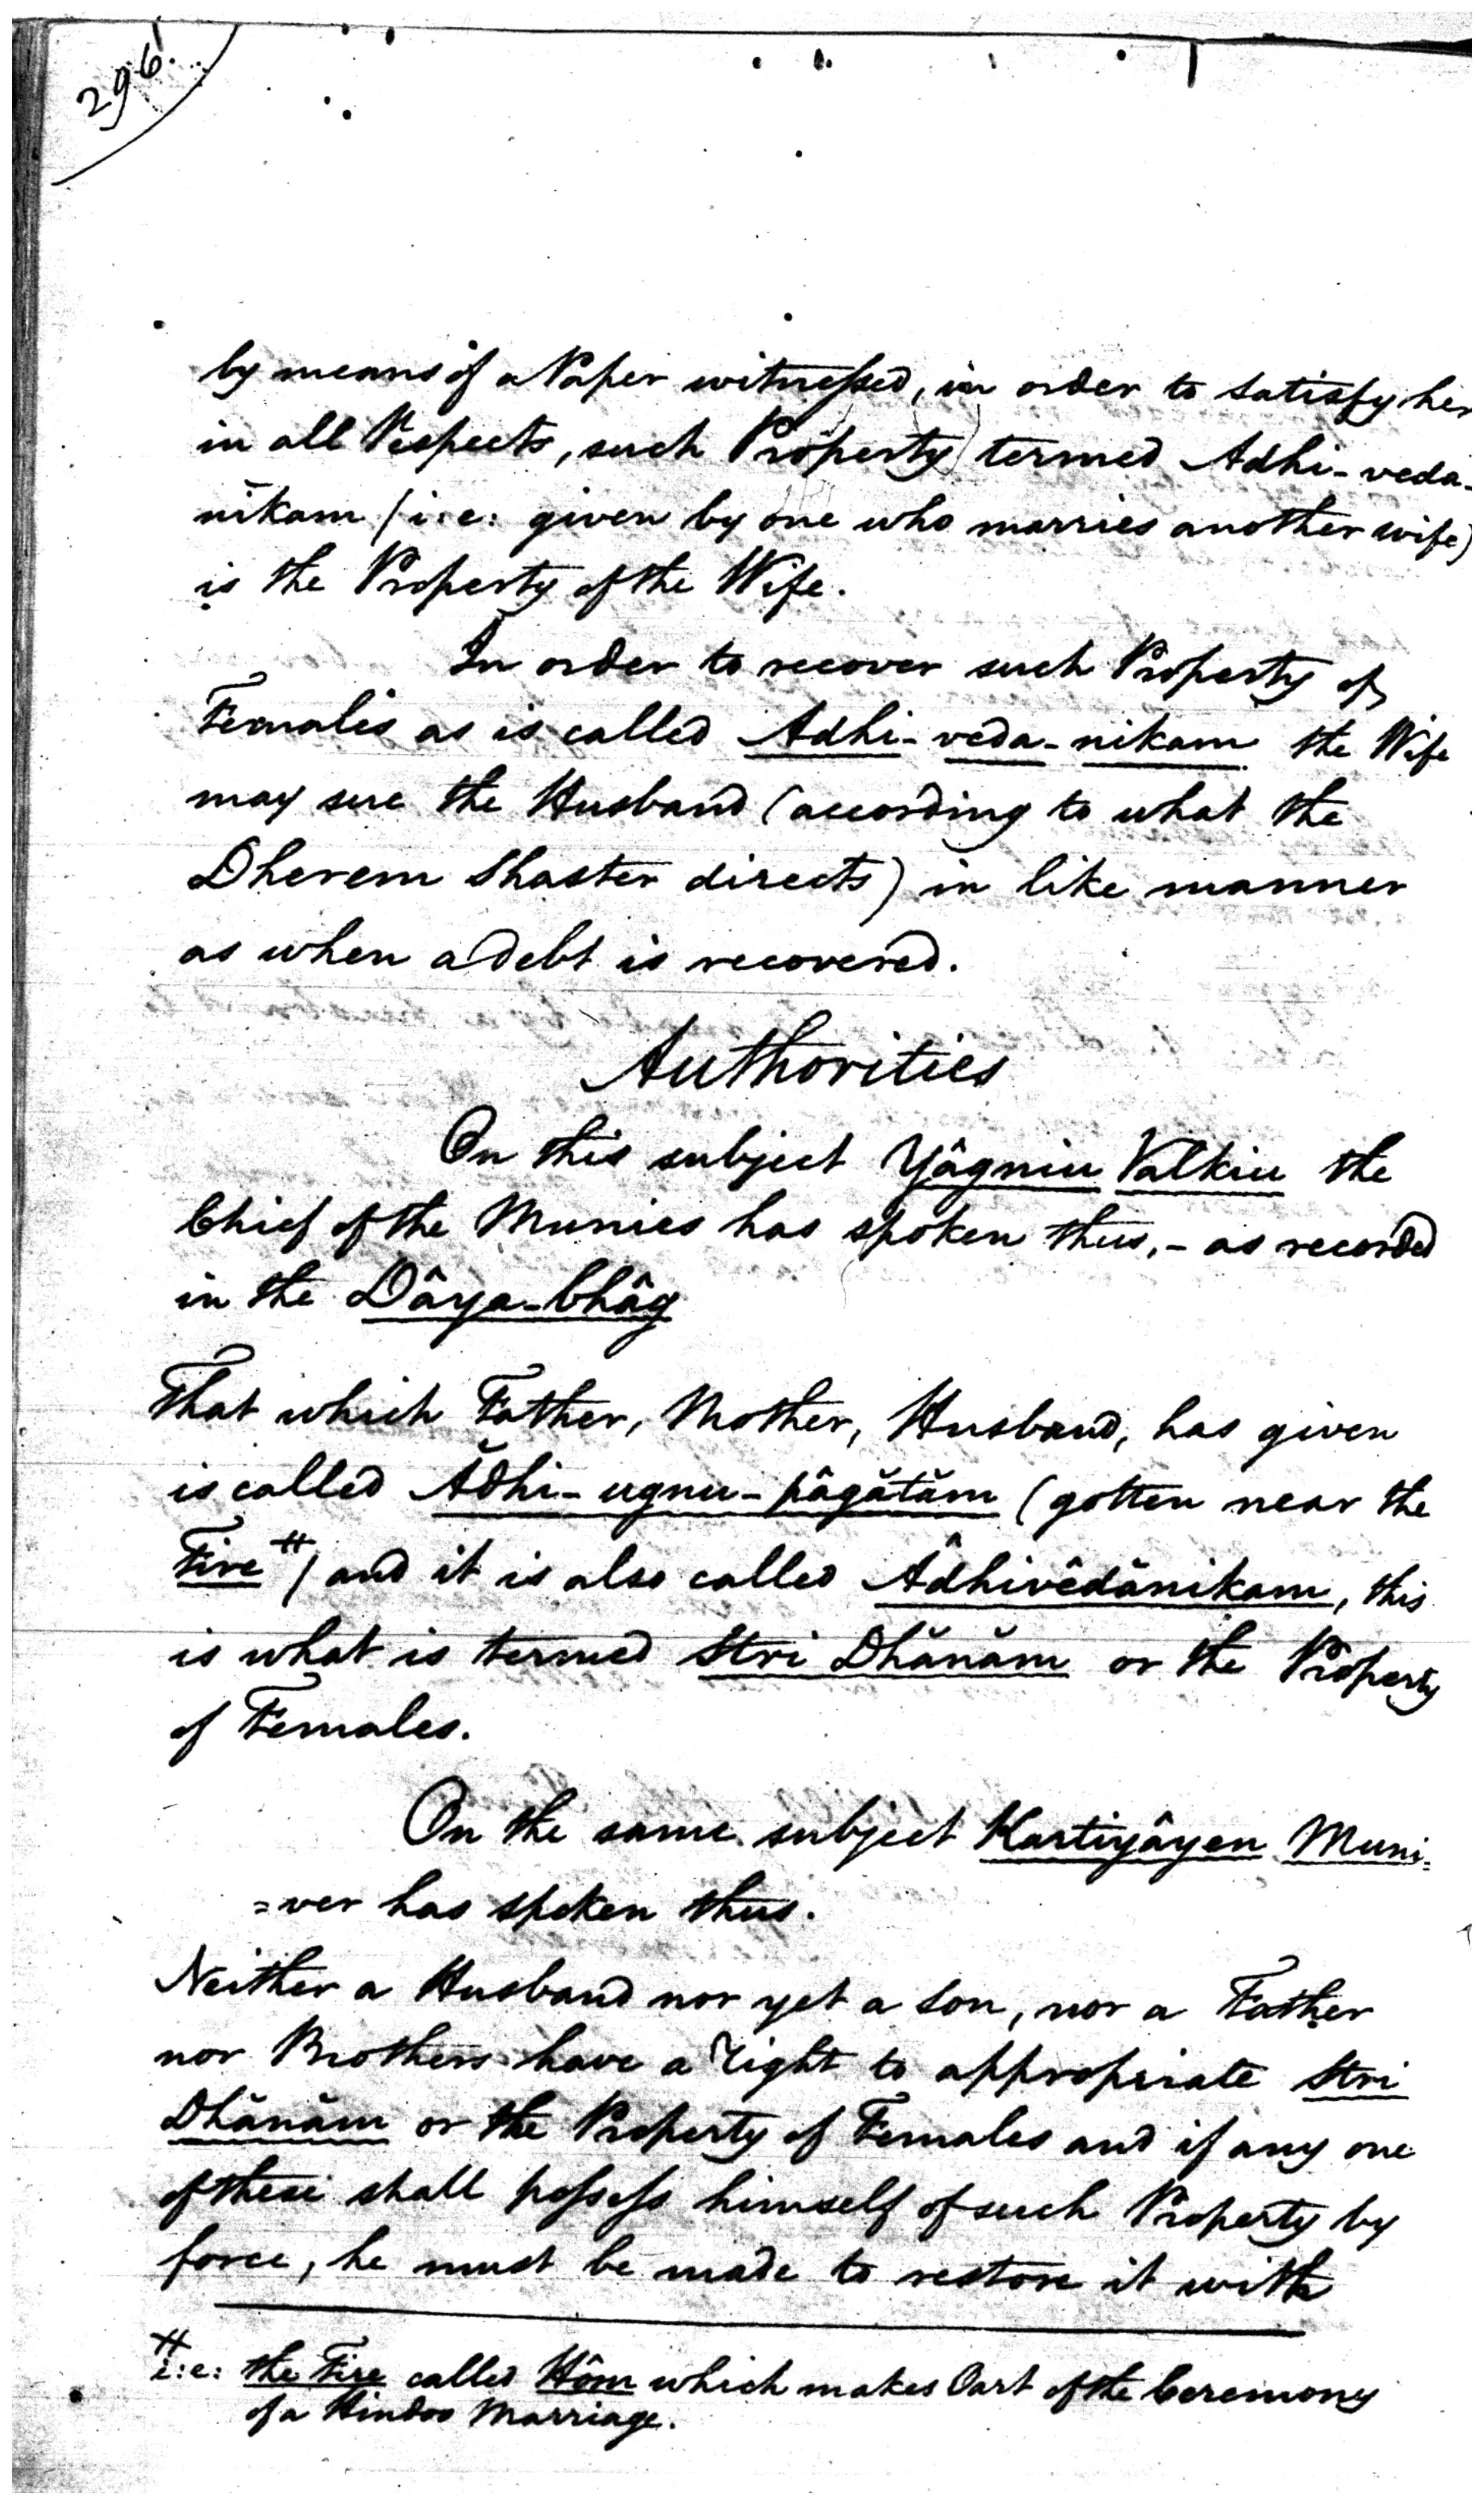 296.
by means of a Paper witneſsed, in order to satisfy her
in all Respects, such Property termed Adhi-veda-
nikam (i:e: given by one who marries another wife)
is the Property of the Wife.
In order to recover such Property of
Females as is called Adhi-veda-nikam the Wife
may sue the Husband (according to what the
Dherem Shaster directs) in like manner
as when a debt is recovered.
Authorities
On this subject Yâgniu Valkiu the
Chief of the Munies has spoken thus,- as recorded
in the Dâya-bhâg
That which Father, Mother, Husband, has given
is called Ădhi-ugnu-pâgătăm (gotten near the
Fire #) and it is also called Âdhivêdănikam, this
is what is termed Stri Dhănăm or the Property
of Females.
On the same subject Kartiyâyen Muni=
=ver has spoken thus.
Neither a Husband nor yet a Son, nor a Father
nor Brothers have a right to appropriate Stri
Dhănăm or the Property of Females and if any one
of these shall poſseſs himself of such Property by
force, he must be made to restore it with
# i:e: the Fire called Hôm which makes Part of the Ceremony
of a Hindoo Marriage.